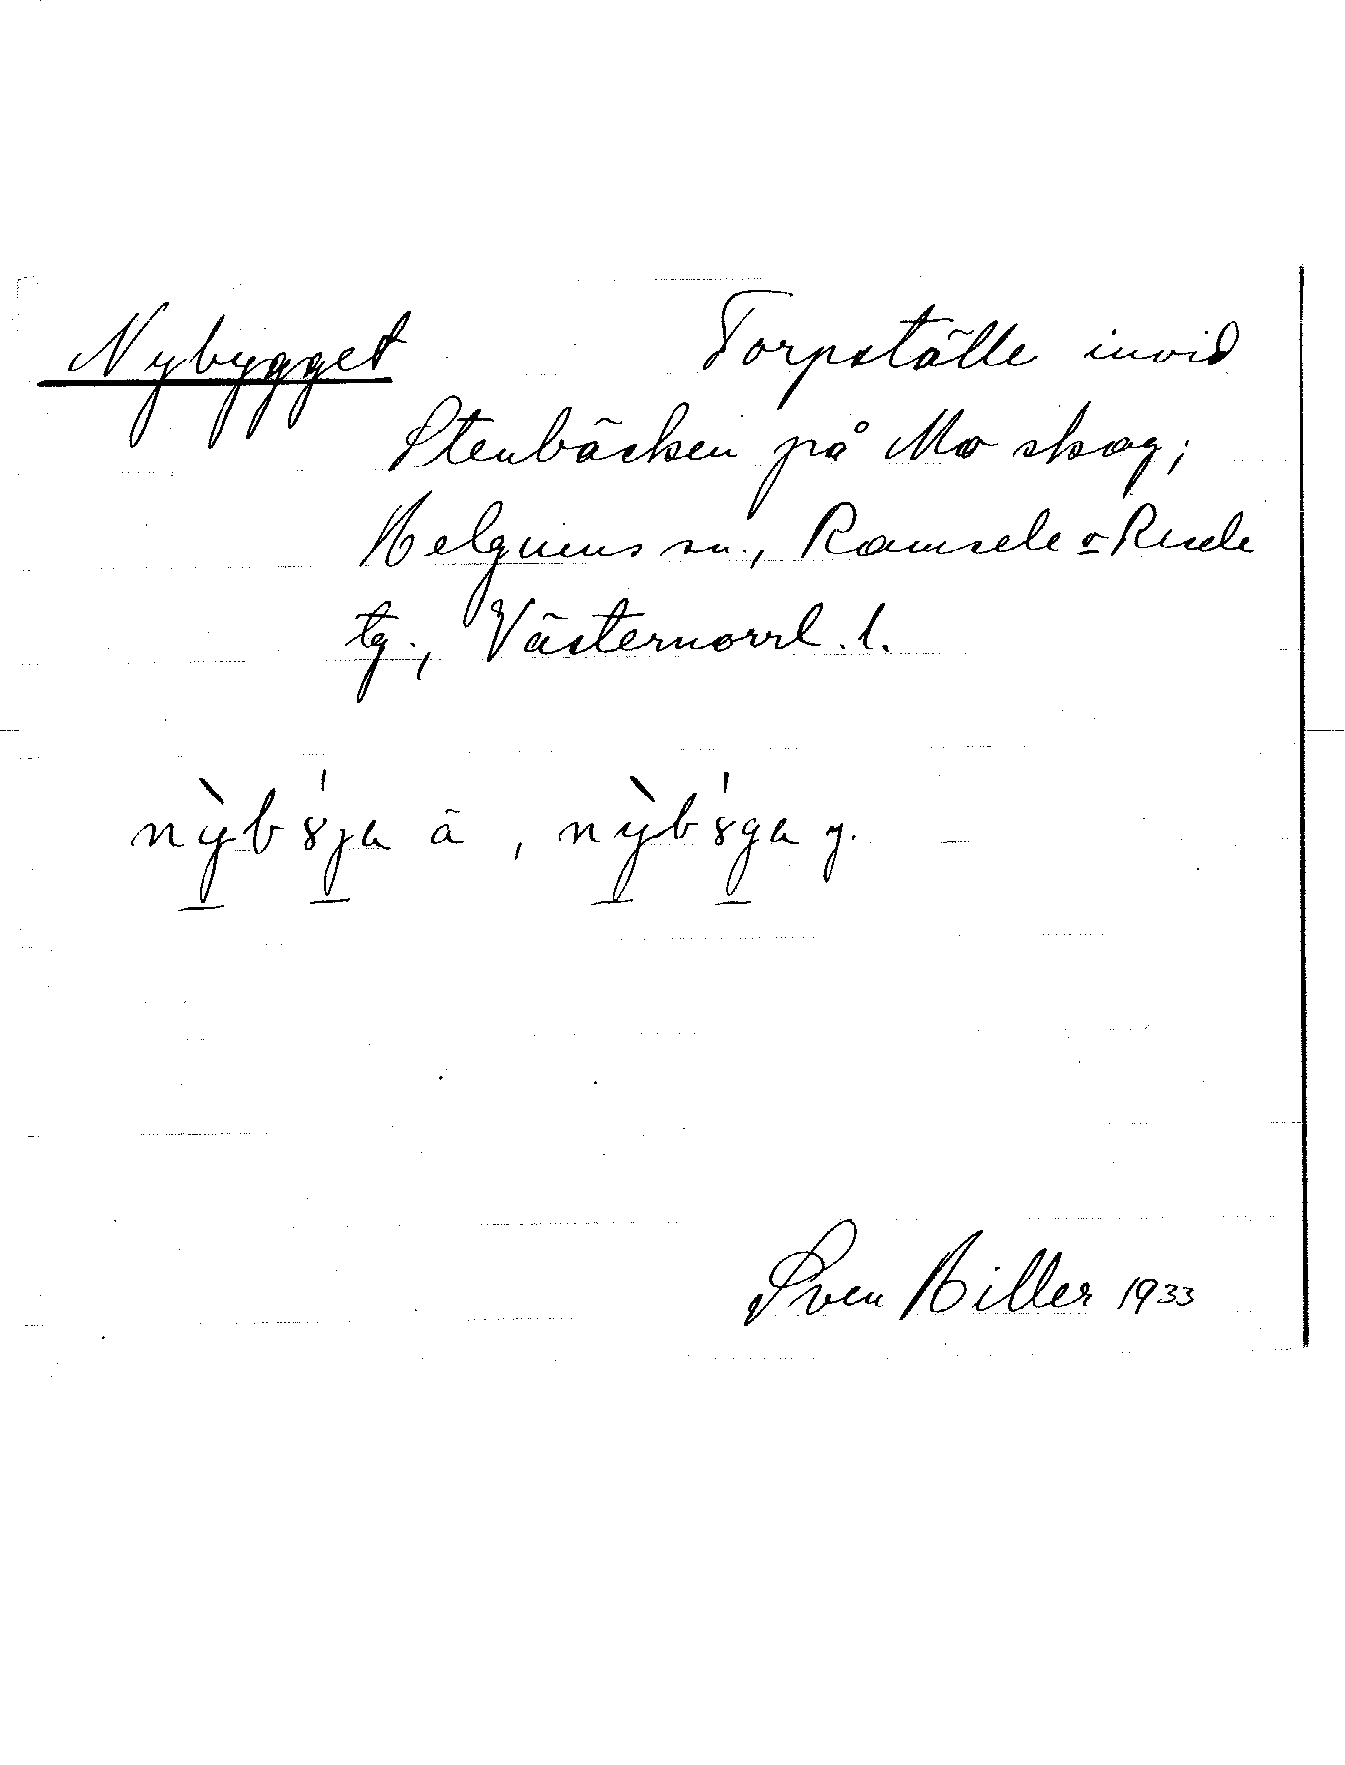 Nybygget Torpställe invid
Stenbäcken på Mo skog;
Helgums sn., Ramsele o Resele
tg., Västernorrl. l.
ä, y.
Sven Hiller 1933